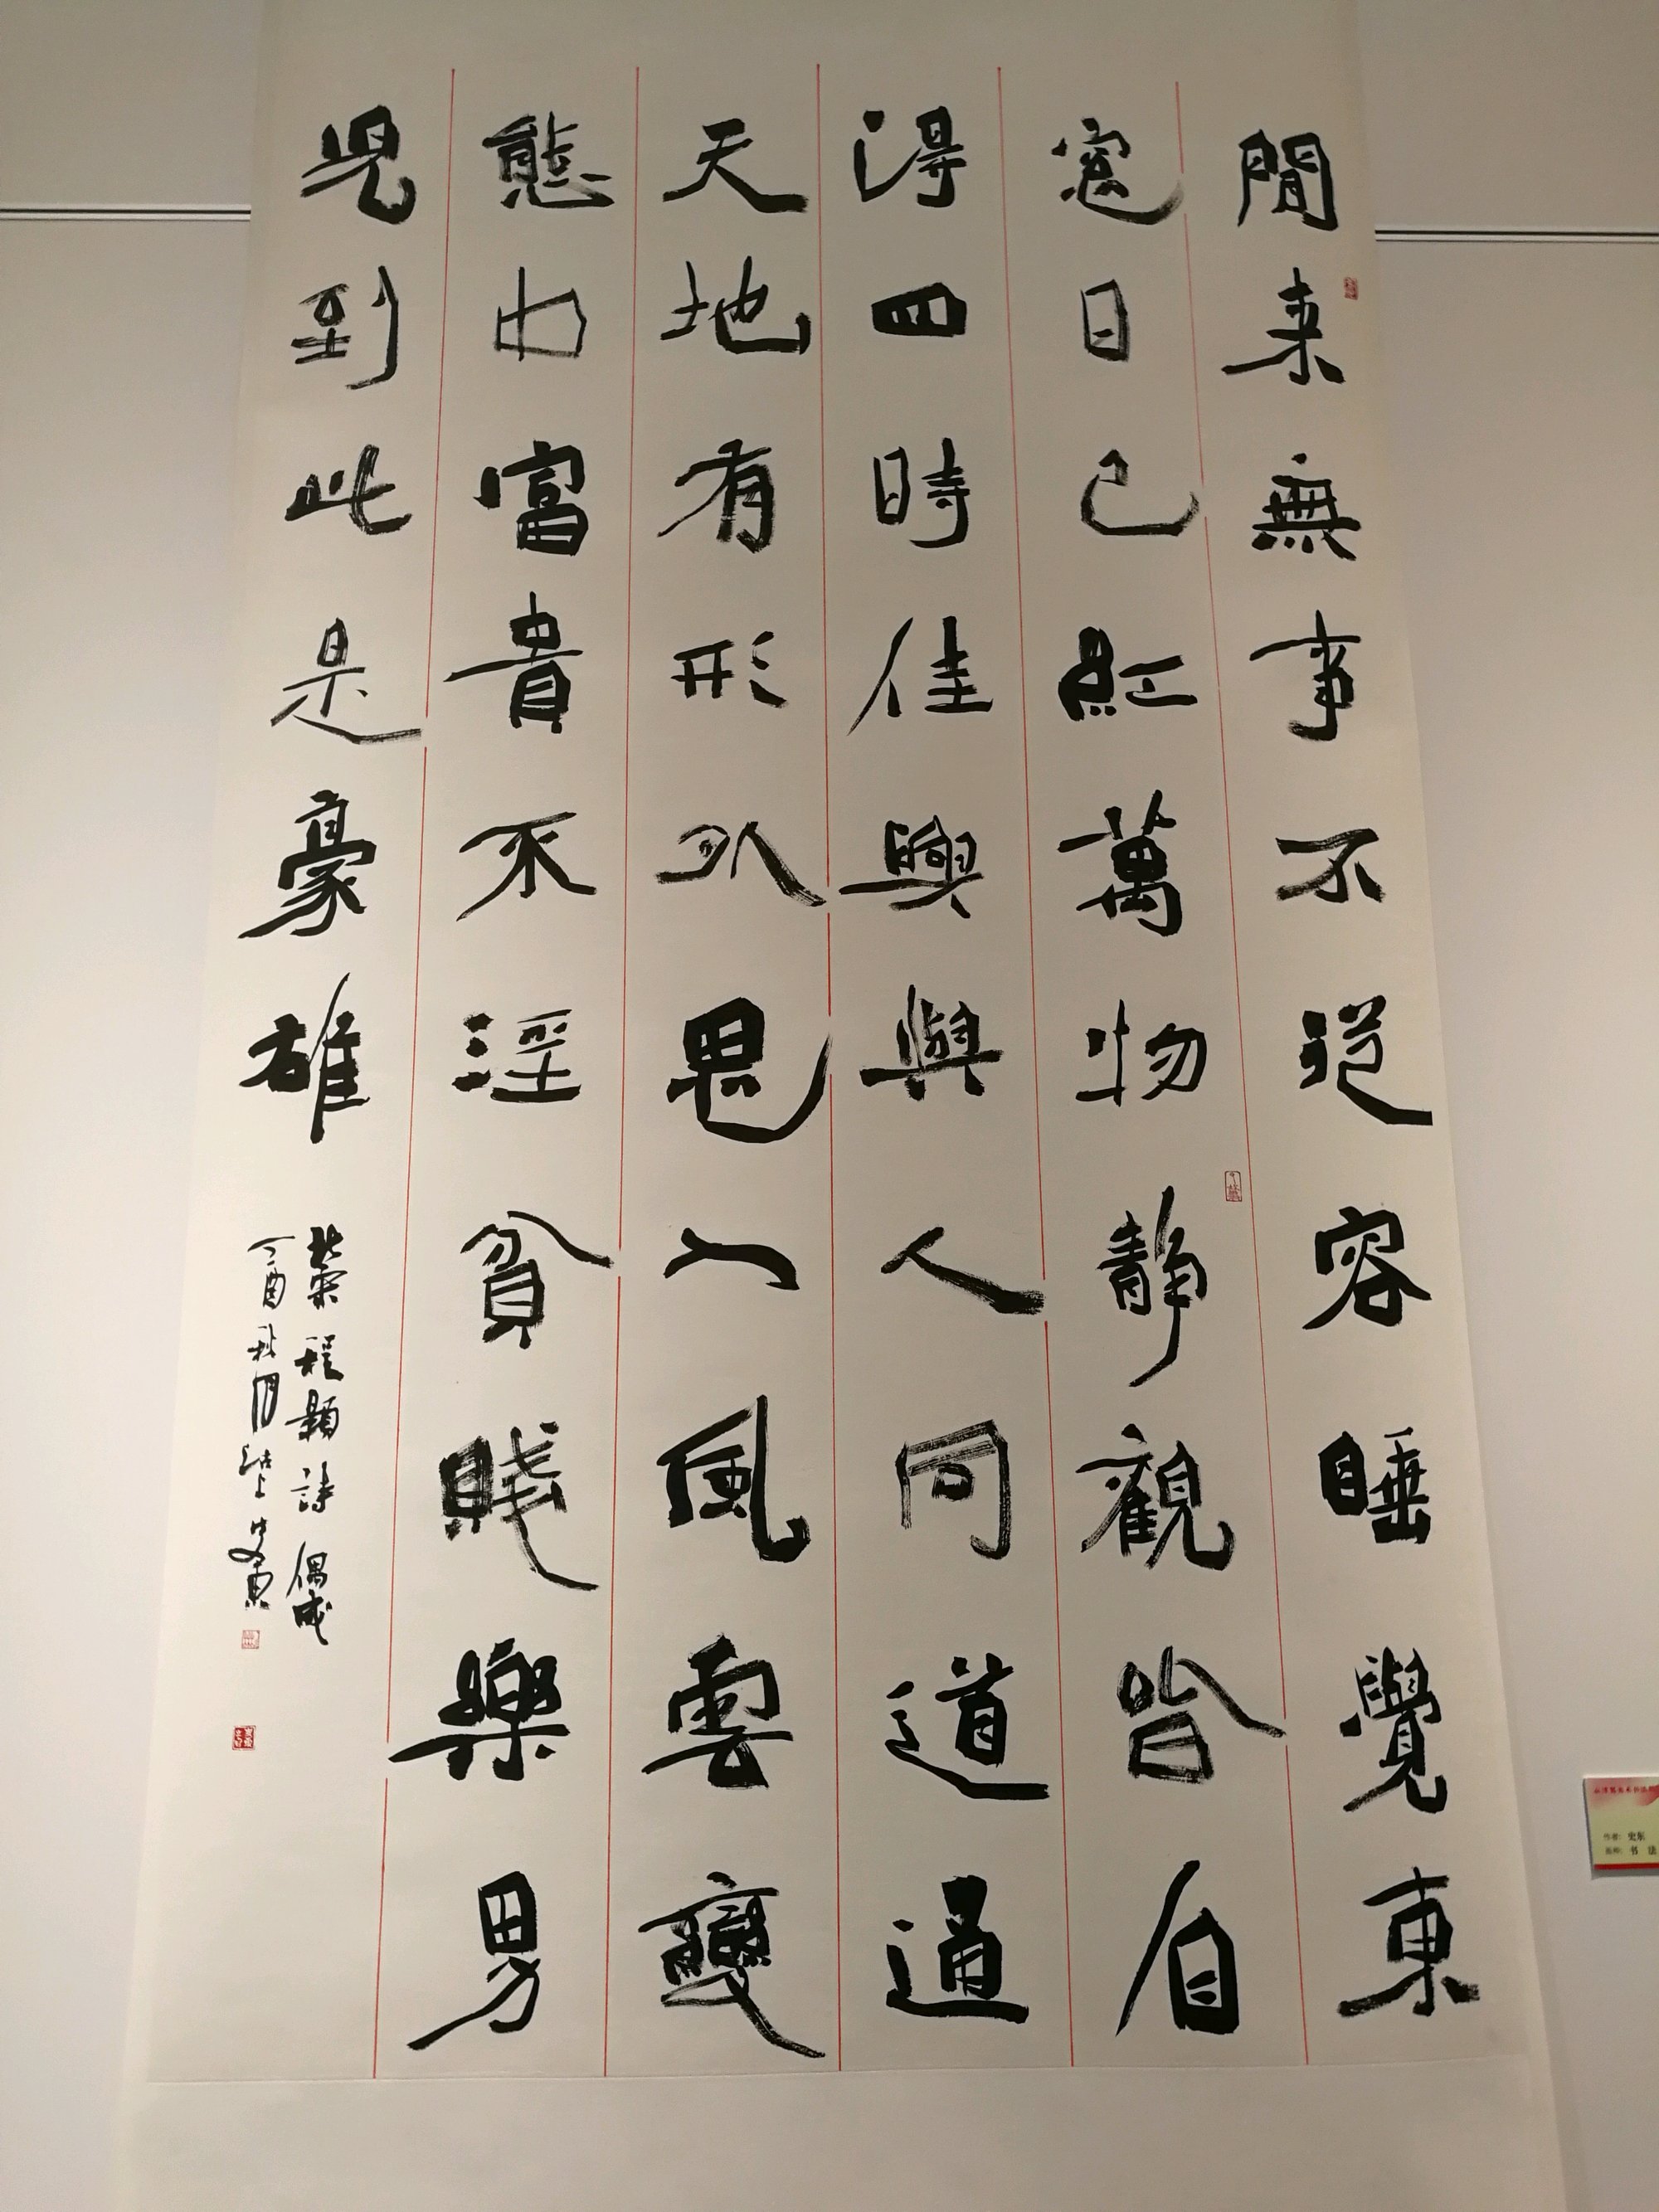 間来無事不從容睡覺東
窓日已紅萬物静觀皆自
得四時佳興與人同道通
天地有形外思入風雲變
態中富貴不淫貧賤樂男
兒到此是豪雄
北宋程顥詩偶成
丁酉秋月沽上史東
作者：史东
书 法